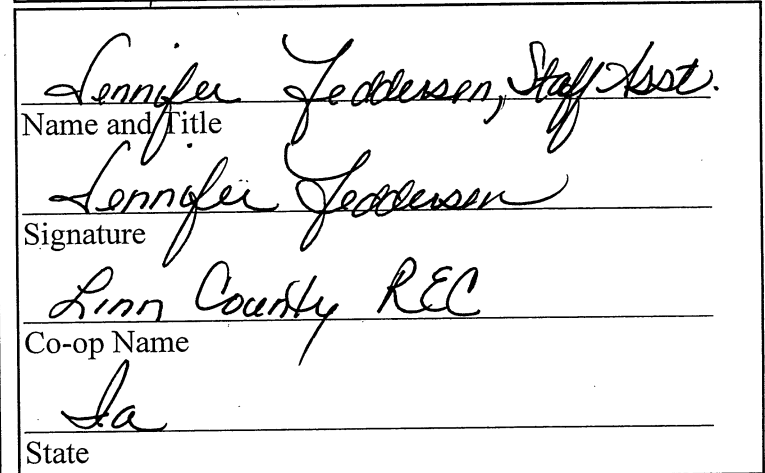 Jennifer Feddersen, Staff Asst.
Name and Title
Jennifer Feddersen
Signature
Linn County REC
Co-op Name
Ia
State